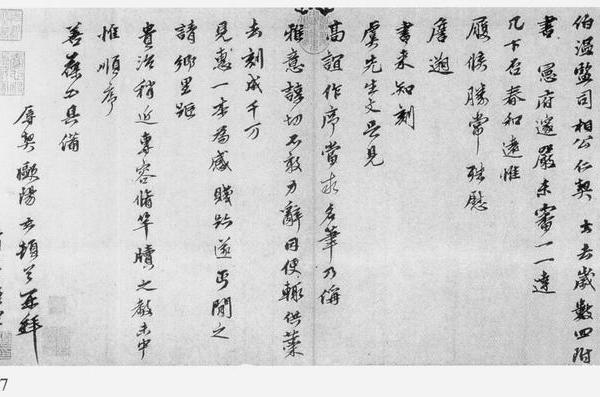 伯温監司相公仁契玄去歲數四附
書憲府邃嚴未審一一達
几下否春和遠惟
履候勝常殊慰
詹遡
書來知刻
虞先生文足見
高誼作序當求名筆乃備
雅意諄切不敢力辭因便輒供藁
去刻成千万
見惠一本為感賤跡遂丐閒之
請鄉里距
貴治稍近專容脩竿牘之敬未中
惟順序
善葆不具備
辱契歐陽玄頓首再拜
7